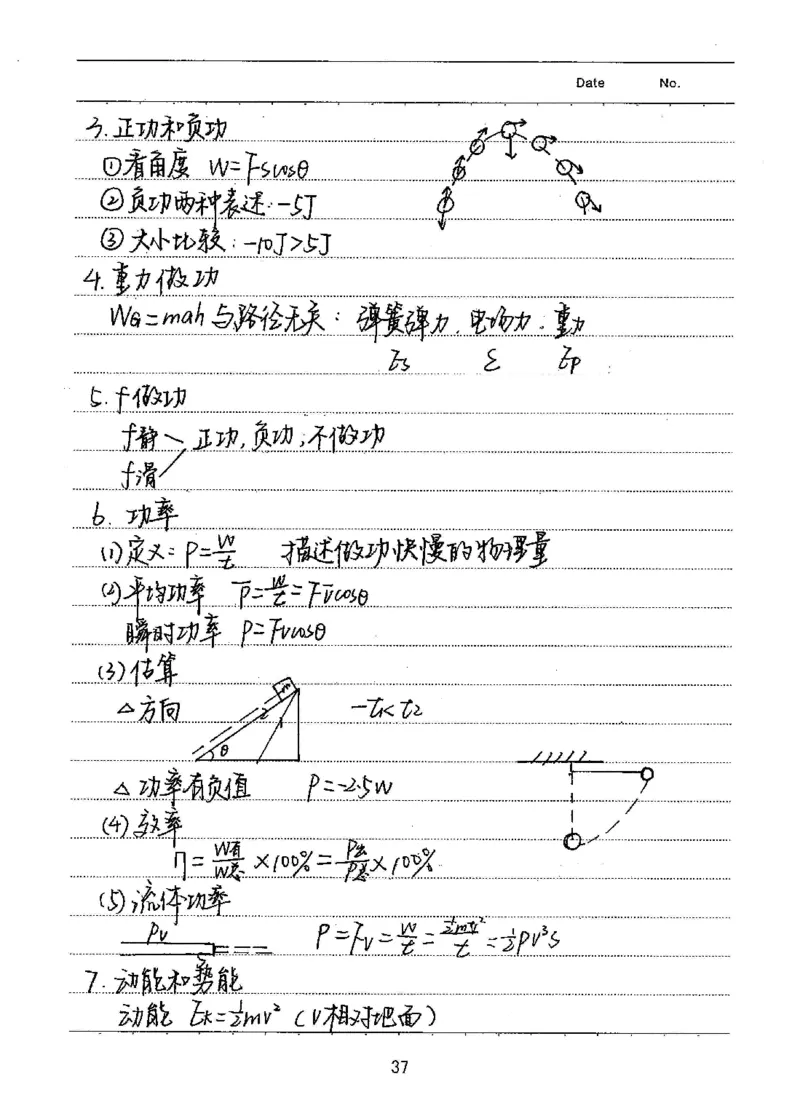 Date No.
3.正功和负功
①看角度 W=Fscosθ
②负功两种表述:-5J
③大小比较:-10J>5J
4.重力做功
WG=mah与路径无关:弹簧弹力.电场力.重力
Es ε Ep
5.f做功
f静 正功,负功,不做功
f滑
6.功率
(1)定义:P=W/t 描述做功快慢的物理量
(2)平均功率 P̅=W/t=Fv̅cosθ
瞬时功率 P=Fvcosθ
(3)估算
△方向 m 2 1 θ -t₁<t₂
△功率有负值 P=-2.5W
(4)效率
η=W有/W总×100%=P出/P总×100%
(5)流体功率
ρv S P=Fv=W/t=½mv²/t=½ρv³S
7.动能和势能
动能 Ek=½mv²(V相对地面)
37